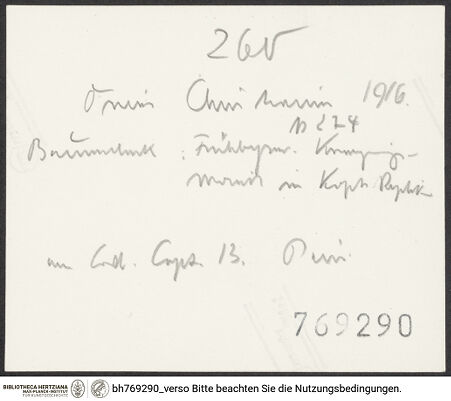 260
Oriens Christianus 1916.
N 274
Baumstark : Frühbyzan. Kreuzigungs-
in Kopt. Replik
Cod. Copt. 13. Paris.
769290
BIBLIOTHECA HERTZIANA
MAX-PLANCK-INSTITUT
FÜR KUNSTGESCHICHTE
bh769290_verso Bitte beachten Sie die Nutzungsbedingungen.